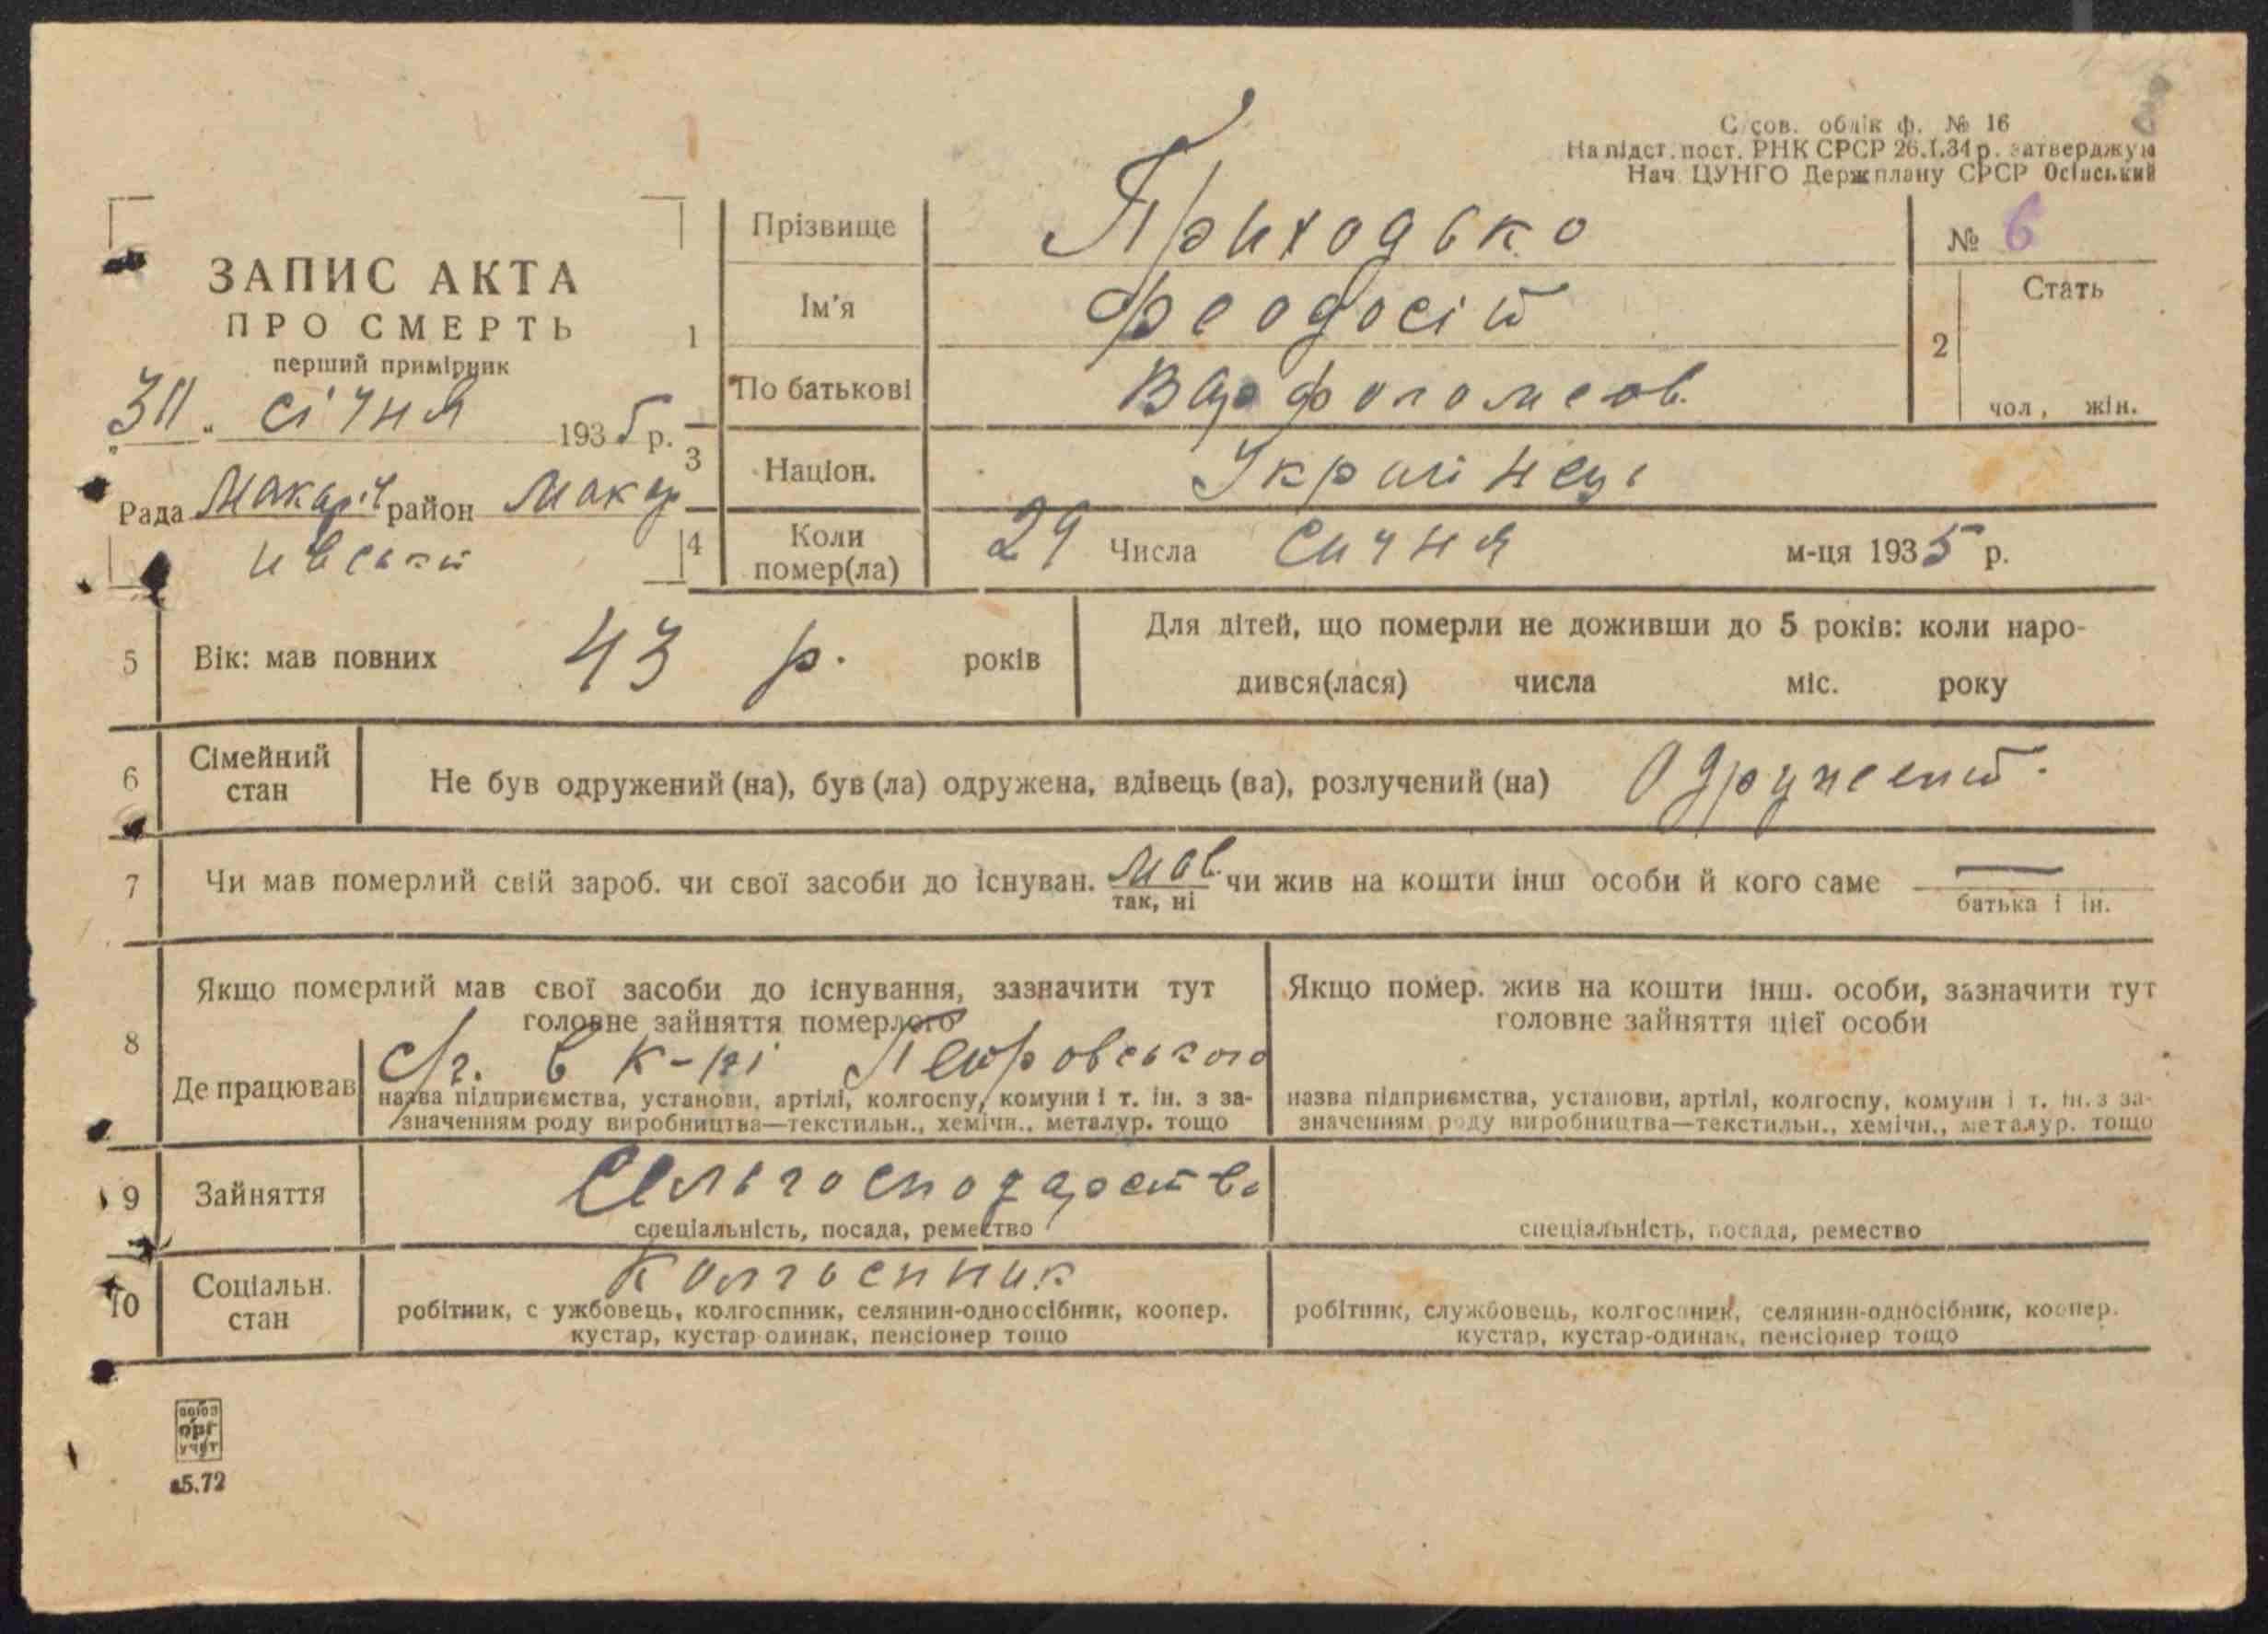 С/сов. облік ф. № 16
На підст. пост. РНК СРСР 26.I.34 р. затверджую
Нач. ЦУНГО Держплану СРСР Осінський
ЗАПИС АКТА
ПРО СМЕРТЬ
перший примірник
„ 30 " січня 1935 р.
Рада Макарів район Макар
ивський
1
Прізвище Приходько
Ім'я Феодосій
По батькові Варфоломеов.
№ 6
2 Стать
чол., жін.
3 Націон. Українець
4 Коли помер(ла) 29 Числа Сичня м-ця 1935 р.
5 Вік: мав повних 43 р. років
Для дітей, що померли не доживши до 5 років: коли наро-
дився(лася) числа міс. року
6 Сімейний стан Не був одружений (на), був (ла) одружена, вдівець (ва), розлучений (на) Одружений.
7 Чи мав померлий свій зароб. чи свої засоби до існуван. мав. чи жив на кошти інш особи й кого саме —
так, ні батька і ін.
8 Якщо померлий мав свої засоби до існування, зазначити тут
головне зайняття померлого
Де працював в к-рі Петровського
назва підприємства, установи, артілі, колгоспу, комуни і т. ін. з за-
значенням роду виробництва—текстильн., хемічн., металур. тощо
Якщо помер. жив на кошти інш. особи, зазначити тут
головне зайняття цієї особи
назва підприємства, установи, артілі, колгоспу, комуни і т. ін. з за-
значенням роду виробництва—текстильн., хемічн., металур. тощо
9 Зайняття Сельгосподарство
спеціальність, посада, ремество
спеціальність, посада, ремество
10 Соціальн. стан Колгоспник
робітник, с ужбовець, колгоспник, селянин-одноосібник, коопер.
кустар, кустар-одинак, пенсіонер тощо
робітник, службовець, колгоспник, селянин-односібник, коопер.
кустар, кустар-одинак, пенсіонер тощо
союз
орг
учет
5.72